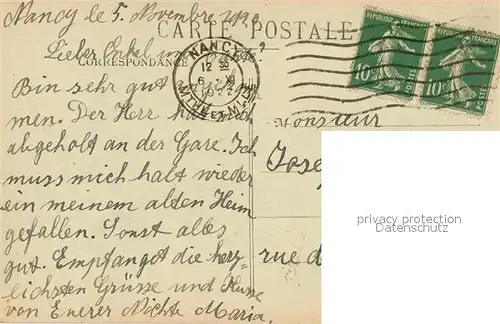 Nancy le 5. Novembre
CARTE POSTALE
Lieber Onkel
CORRESPONDANCE
NANCY
12 35
6 XI
MTHE ET MLLE
REPUBLIQUE FRANÇAISE
10c
POSTES
REPUBLIQUE FRANÇAISE
10c
POSTES
Bin sehr gut
men. Der Herr
abgeholt an der Gare. Ich
muss mich halt wieder
ein meinem alten Heim
gefallen. Sonst alles
gut. Empfangt die herz-
lichsten Grüsse und Küsse
von Euerer Nichte Maria.
Monsieur
Jose
rue d
privacy protection
Datenschutz